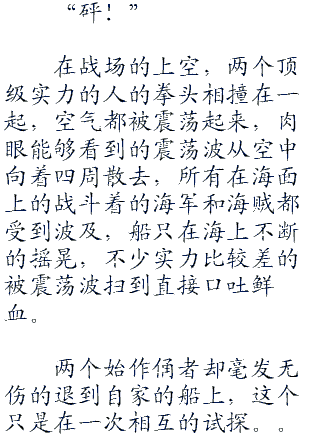 “砰！”
在战场的上空，两个顶
级实力的人的拳头相撞在一
起，空气都被震荡起来，肉
眼能够看到的震荡波从空中
向着四周散去，所有在海面
上的战斗着的海军和海贼都
受到波及，船只在海上不断
的摇晃，不少实力比较差的
被震荡波扫到直接口吐鲜
血。
两个始作俑者却毫发无
伤的退到自家的船上，这个
只是在一次相互的试探。。